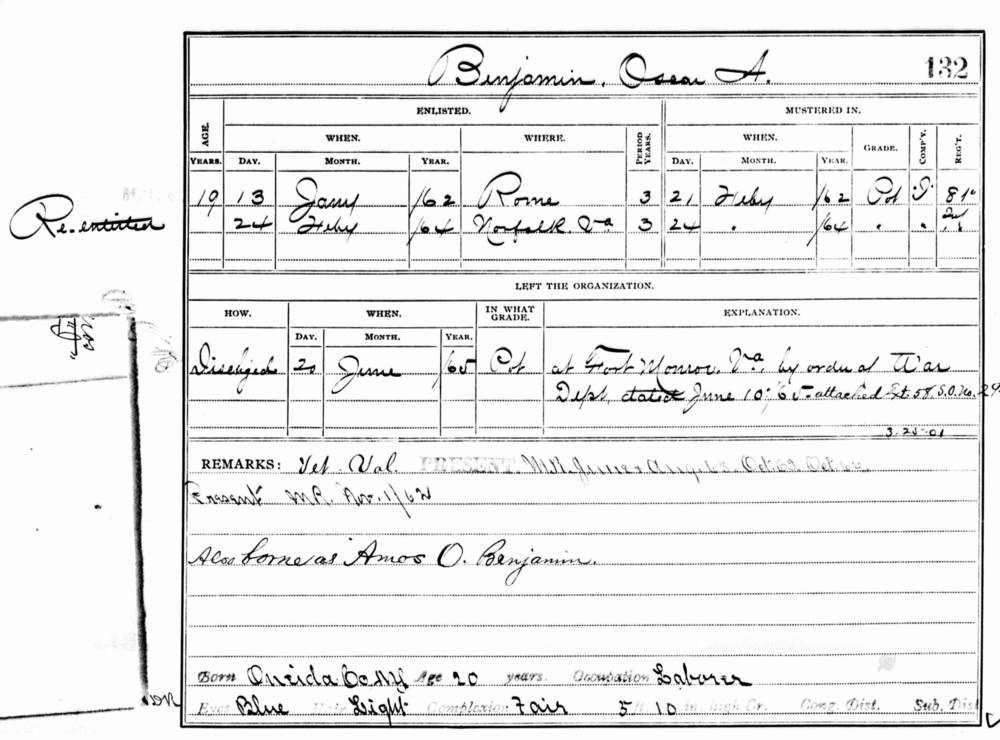 Benjamin, Oscar A. 132
ENLISTED. MUSTERED IN.
AGE. WHEN. WHERE. PERIOD YEARS. WHEN. GRADE. COMP'Y. REG'T.
YEARS. DAY. MONTH. YEAR. DAY. MONTH. YEAR.
19 13 Jany /62 Rome 3 21 Feby /62 Pvt I 81"
Re-enlisted 24 Feby /64 Norfolk Va 3 24 " /64 " " "
LEFT THE ORGANIZATION.
HOW. WHEN. IN WHAT GRADE. EXPLANATION.
DAY. MONTH. YEAR.
Dischgd 20 June /65 Pvt at Fort Monroe, Va, by order of War
Dept, dated June 10, '65 - attached S.O. No.
3-25-01
REMARKS: Vet. Vol. PRESENT M.R. June & Aug Oct. 63. Oct.
Present M.R. Nov. 1/62
Also borne as Amos O. Benjamin.
Born Oneida Co NY Age 20 years. Occupation Laborer
Eyes Blue Hair Light Complexion Fair 5 ft. 10 in. high Cr. Cong. Dist. Sub. Dist